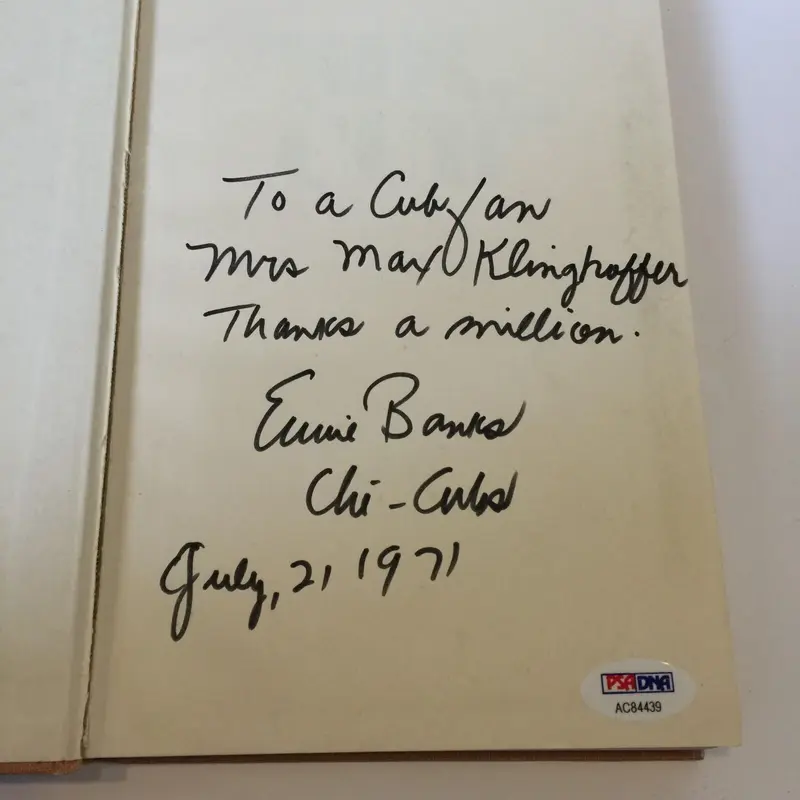 To a Cub fan
Mrs Max Klinghoffer
Thanks a million.
Ernie Banks
Chi-Cubs
July, 21 1971
PSA DNA
AC84439